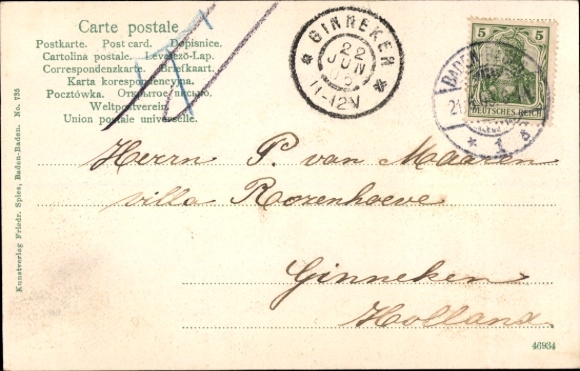 Carte postale
Postkarte. Post card. Dopisnice.
Cartolina postale. Levelező-Lap.
Correspondenzkarte. Briefkaart.
Karta korespondencyjna.
Pocztówka. Открытое письмо.
Weltpostverein.
Union postale universelle.
GINNEKEN
22
JUN
11-12V
5 5
DEUTSCHES REICH
BADEN
1
Herrn P. van Maaren
villa Rozenhoeve
Ginneken
Holland
Kunstverlag Friedr. Spies, Baden-Baden. No. 735
46934